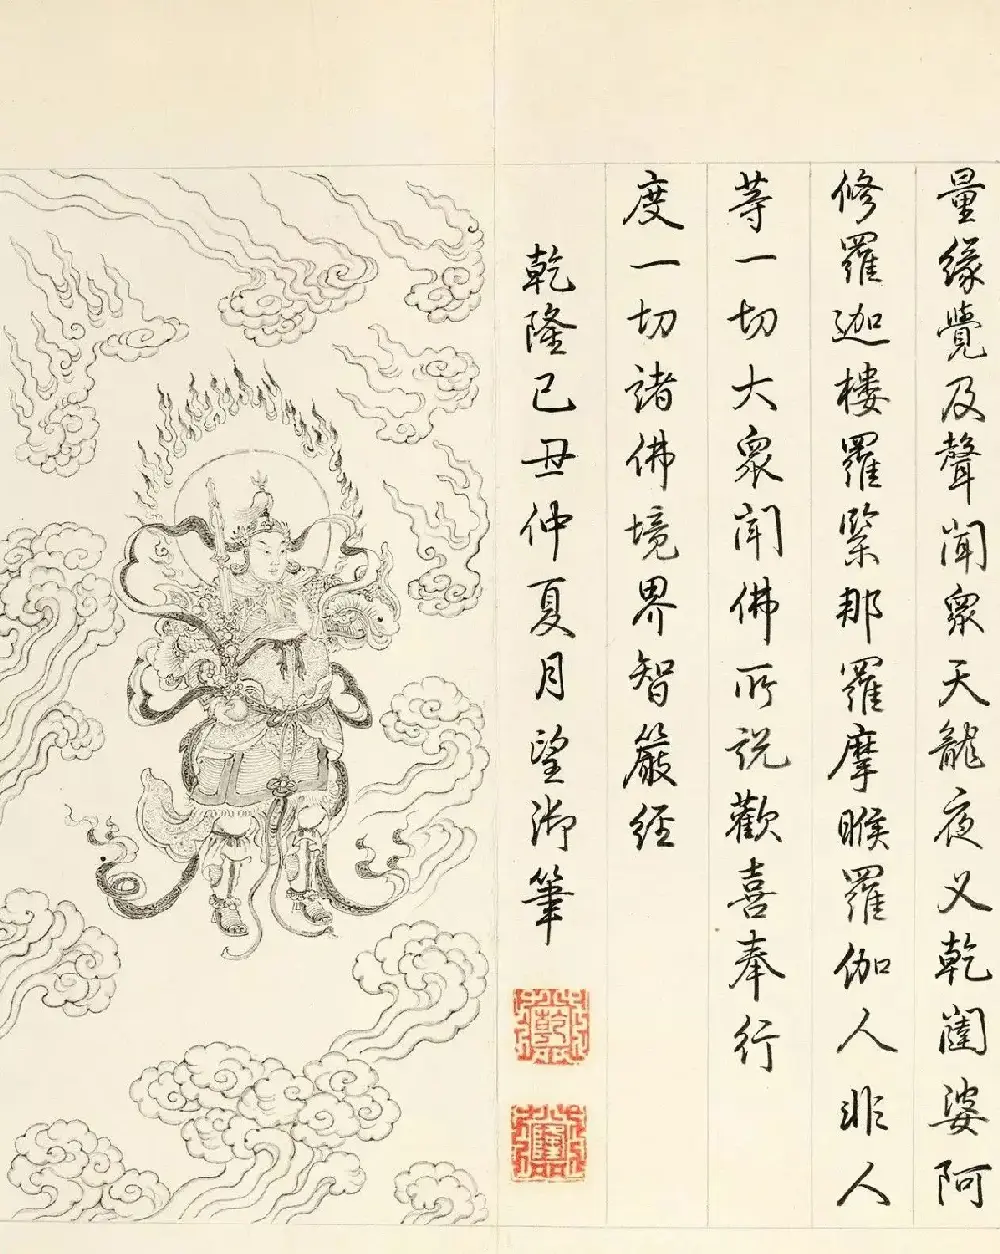 量緣覺及聲聞衆天龍夜义乾闥婆阿
修羅迦樓羅緊那羅摩睺羅伽人非人
等一切大衆聞佛所說歡喜奉行
度一切諸佛境界智嚴經
乾隆己丑仲夏月望御筆
乾
隆